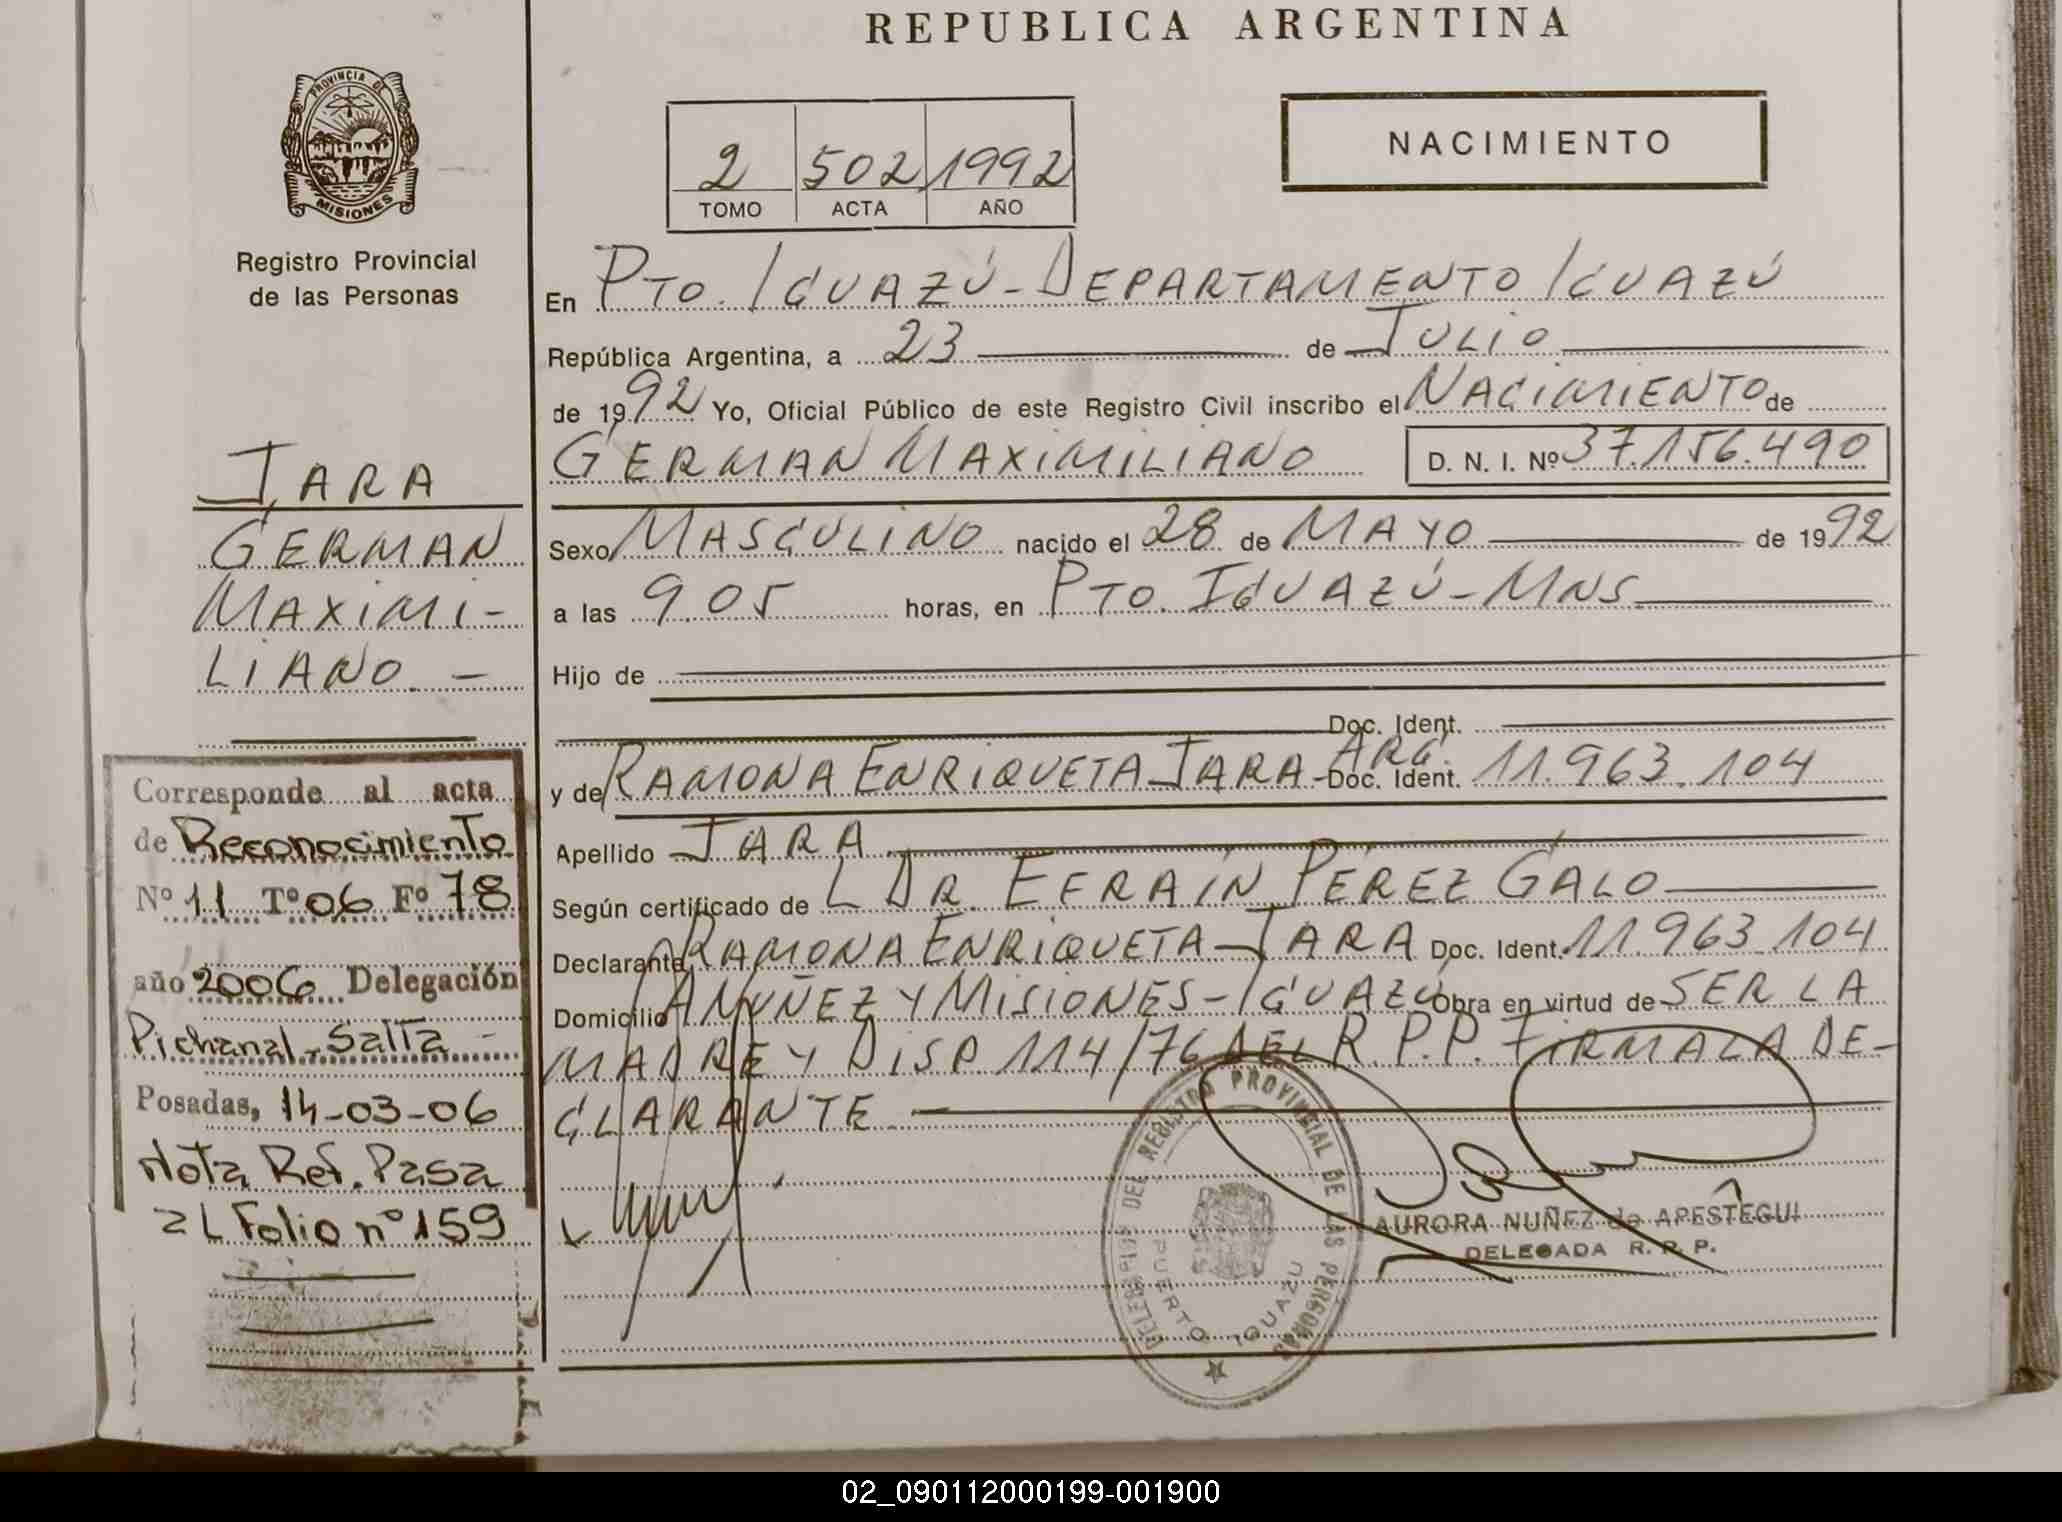 REPUBLICA ARGENTINA
PROVINCIA DE
MISIONES
Registro Provincial
de las Personas
2 502 1992
TOMO ACTA AÑO
NACIMIENTO
En PTO. IGUAZÚ - DEPARTAMENTO IGUAZÚ
República Argentina, a 23 de JULIO
de 1992 Yo, Oficial Público de este Registro Civil inscribo el NACIMIENTO de
GERMAN MAXIMILIANO D. N. I. Nº 37.156.490
Sexo MASCULINO nacido el 28 de MAYO de 1992
a las 9.05 horas, en PTO. IGUAZÚ - MNS
Hijo de
Doc. Ident.
y de RAMONA ENRIQUETA JARA - ARG. Doc. Ident. 11.963.104
Apellido JARA
Según certificado de L DR. EFRAÍN PÉREZ GALO
Declarante RAMONA ENRIQUETA JARA Doc. Ident. 11.963.104
Domicilio A NUÑEZ Y MISIONES - IGUAZÚ Obra en virtud de SER LA
MADRE Y DISP 114/76 DEL R.P.P. FIRMA LA DE-
CLARANTE
AURORA NUÑEZ de APESTEGUI
DELEGADA R. R. P.
DEL REGISTRO PROVINCIAL DE LAS PERSONAS
PUERTO IGUAZU
JARA
GERMAN
MAXIMI-
LIANO. -
Corresponde al acta
de Reconocimiento
Nº 11 Tº 06 Fº 78
año 2006 Delegación
Pichanal - Salta -
Posadas, 14-03-06
Nota Ref. Pasa
al Folio nº 159
02_090112000199-001900